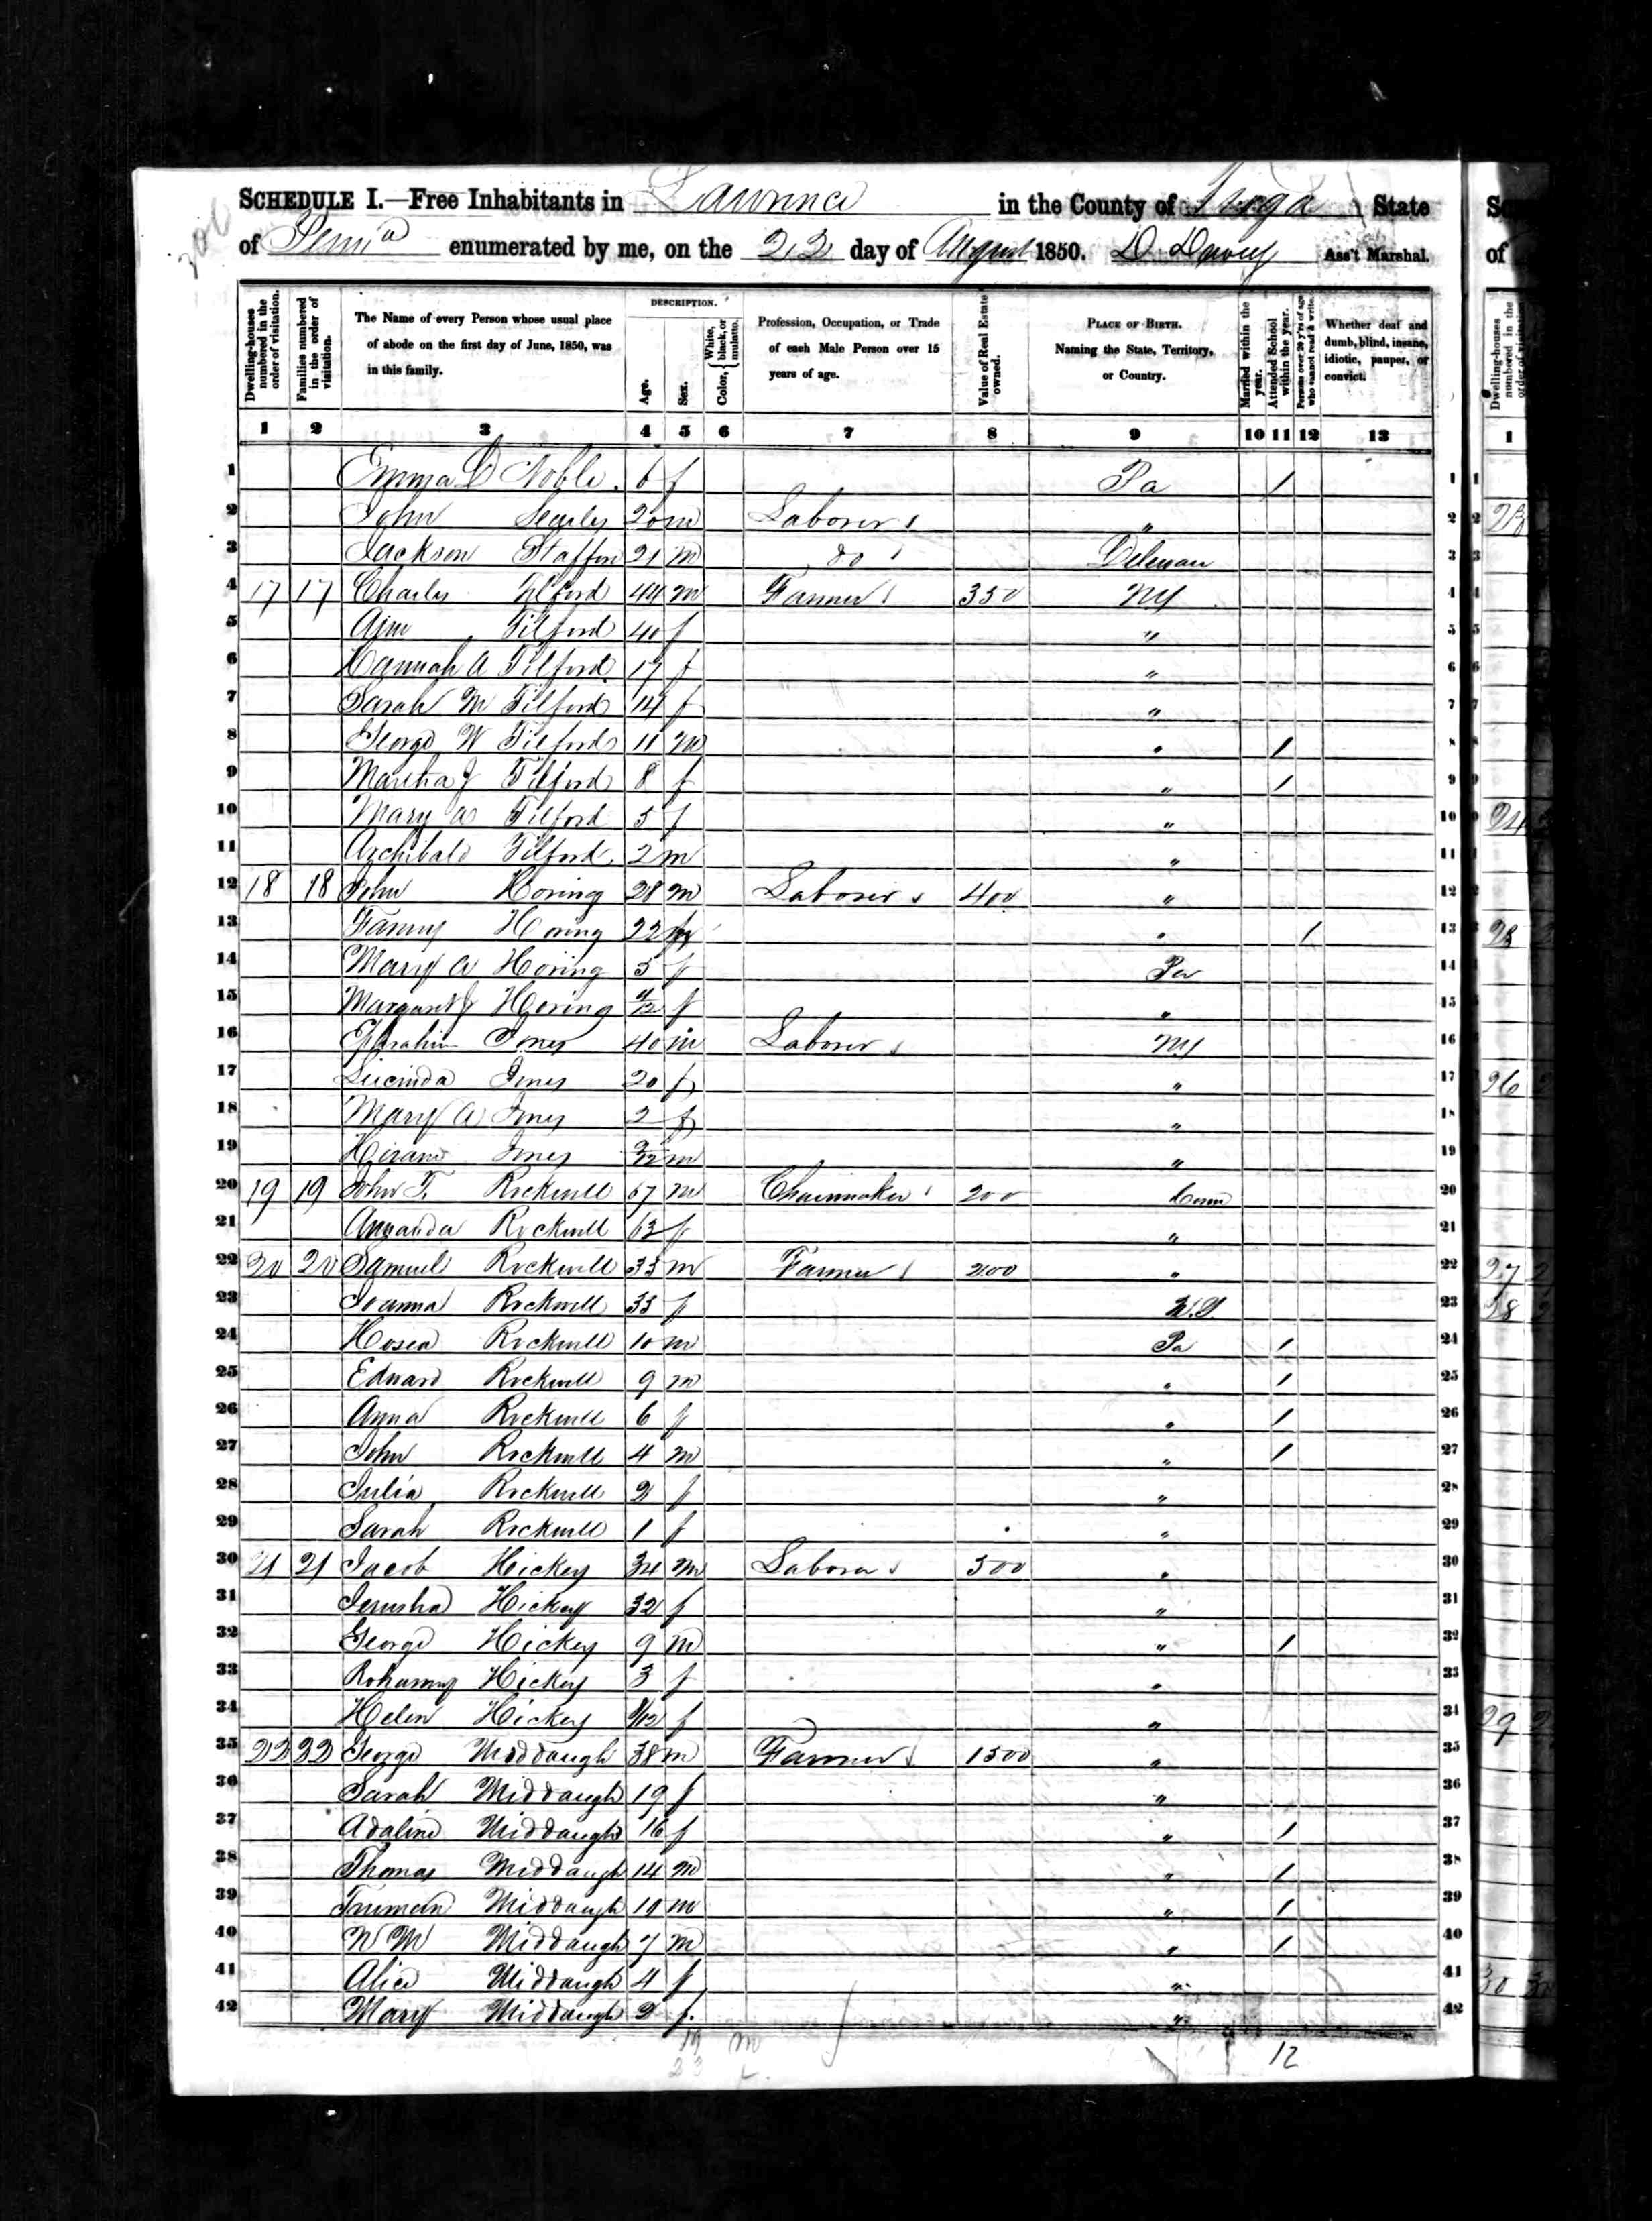 SCHEDULE I.—Free Inhabitants in Lawrence in the County of Tioga State
of Penn'a enumerated by me, on the 22 day of August 1850. Ass't Marshal.
Dwelling-houses numbered in the order of visitation.
Families numbered in the order of visitation.
The Name of every Person whose usual place of abode on the first day of June, 1850, was in this family.
DESCRIPTION.
Age.
Sex.
Color, { White, black, or mulatto.
Profession, Occupation, or Trade of each Male Person over 15 years of age.
Value of Real Estate owned.
PLACE OF BIRTH. Naming the State, Territory, or Country.
Married within the year.
Attended School within the year.
Persons over 20 y'rs of age who cannot read & write.
Whether deaf and dumb, blind, insane, idiotic, pauper, or convict.
1 2 3 4 5 6 7 8 9 10 11 12 13
1 Emma D Noble 6 f Pa / 1
2 John 20 m Laborer " 2
3 Jackson 21 m do 3
4 17 17 Charles Tilford 44 m Farmer 350 NY 4
5 Tilford 40 f " 5
6 Hannah A Tilford 17 f " 6
7 Sarah M Tilford 14 f " 7
8 George W Tilford 11 m " / 8
9 Martha J Tilford 8 f " / 9
10 Mary A Tilford 5 f " 10
11 Archibald Tilford 2 m " 11
12 18 18 John Horing 28 m Laborer 400 " 12
13 Fanny Horing 22 f " / 13
14 Mary A Horing 5 f Pa 14
15 Margaret J Horing f " 15
16 Ephraim Jones 40 m Laborer NY 16
17 Lucinda Jones 20 f " 17
18 Mary A Jones 2 f " 18
19 Hiram Jones m " 19
20 19 19 John T. Rockwell 67 m Chairmaker 200 Conn 20
21 Amanda Rockwell 63 f " 21
22 20 20 Samuel Rockwell 35 m Farmer 200 " 22
23 Joanna Rockwell 33 f 23
24 Hosea Rockwell 10 m Pa / 24
25 Edward Rockwell 9 m " / 25
26 Anna Rockwell 6 f " / 26
27 John Rockwell 4 m " / 27
28 Julia Rockwell 2 f " 28
29 Sarah Rockwell 1 f " 29
30 21 21 Jacob Hickey 34 m Laborer 500 " 30
31 Jerusha Hickey 32 f " 31
32 George Hickey 9 m " / 32
33 Rohamy Hickey 3 f " 33
34 Helen Hickey f " 34
35 22 22 George Middaugh 38 m Farmer 1500 " 35
36 Sarah Middaugh 19 f " 36
37 Adaline Middaugh 16 f " / 37
38 Thomas Middaugh 14 m " / 38
39 Truman Middaugh m " / 39
40 Wm Middaugh 7 m " / 40
41 Alice Middaugh 4 f " 41
42 Mary Middaugh 2 f " 42
19 m
23 f
12